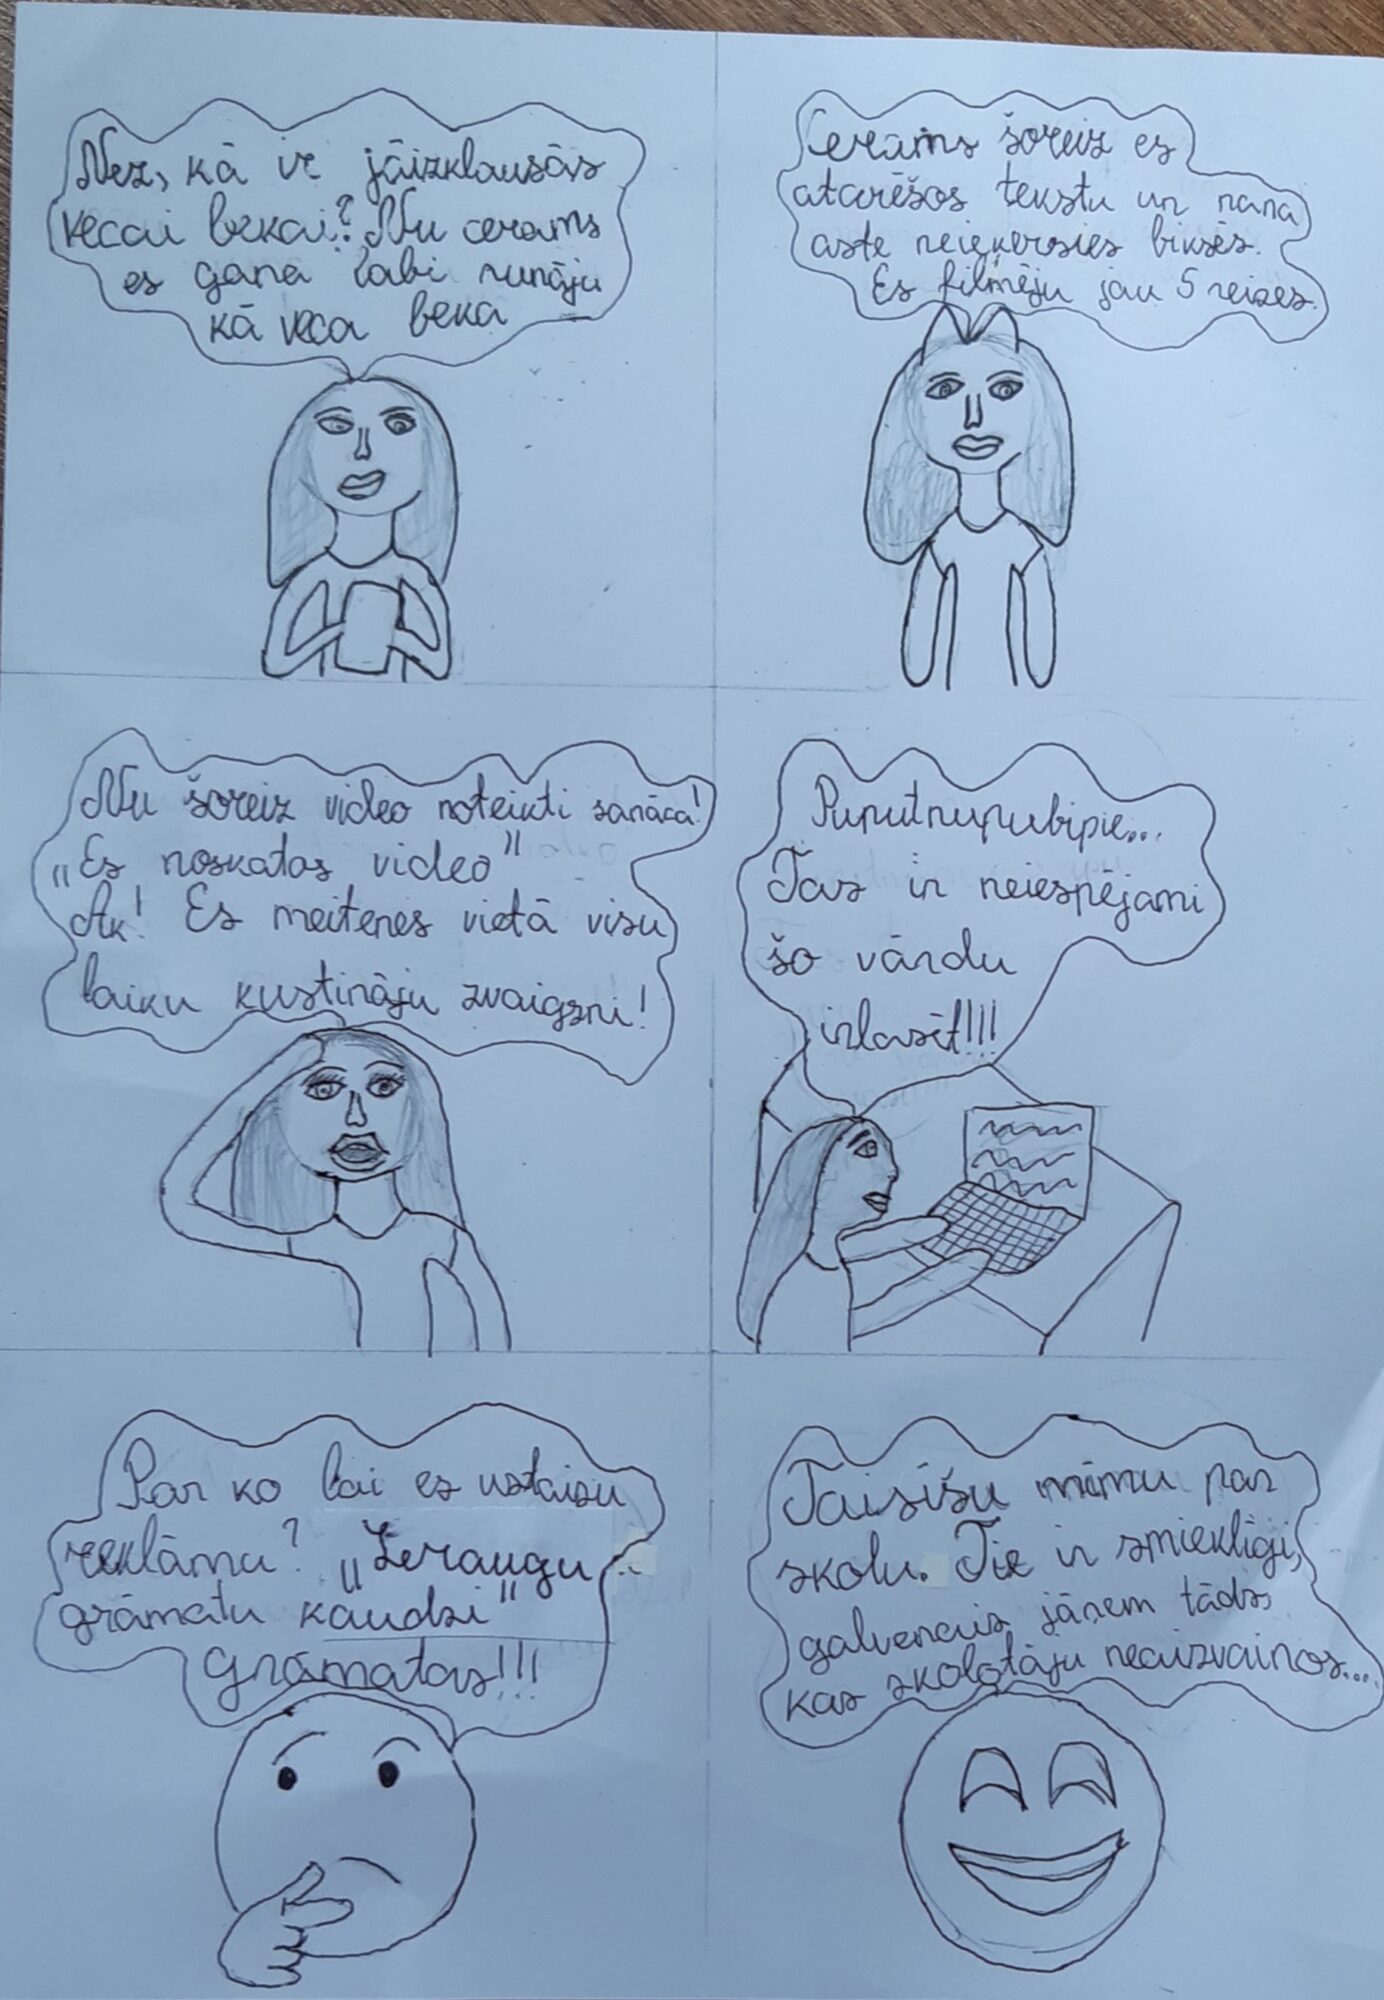 Nez, kā ir jāizklausās
vecai bekai? Nu cerams
es gana labi runāju
kā veca beka
Cerams šoreiz es
atcerēšos tekstu un mana
aste neieķersies biksēs.
Es filmēju jau 5 reizes.
Nu šoreiz video noteikti sanāca!
„Es noskatos video”
Ak! Es meitenes vietā visu
laiku kustināju zvaigzni!
Tas ir neiespējami
šo vārdu
izlasīt!!!
Par ko lai es uztaisu
reklāmu? „Ieraugu
grāmatu kaudzi”
Grāmatas!!!
Taisīšu mīmu par
skolu. Tie ir smieklīgi,
galvenais jāņem tāds,
kas skolotāju neaizvainos...